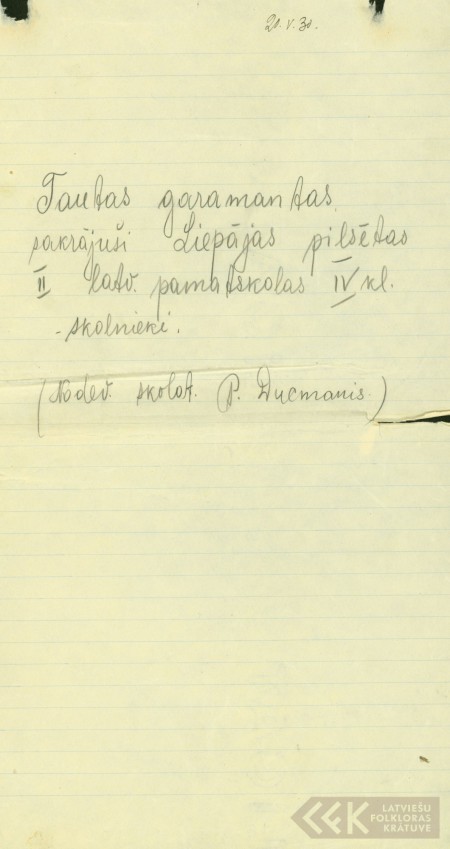 20.V.30.
Tautas garamantas
sakrājuši Liepājas pilsētas
II latv. pamatskolas IV kl.
skolnieki.
(Nodev. skolot. P. Ducmanis.)
LATVIEŠU
FOLKLORAS
KRĀTUVE